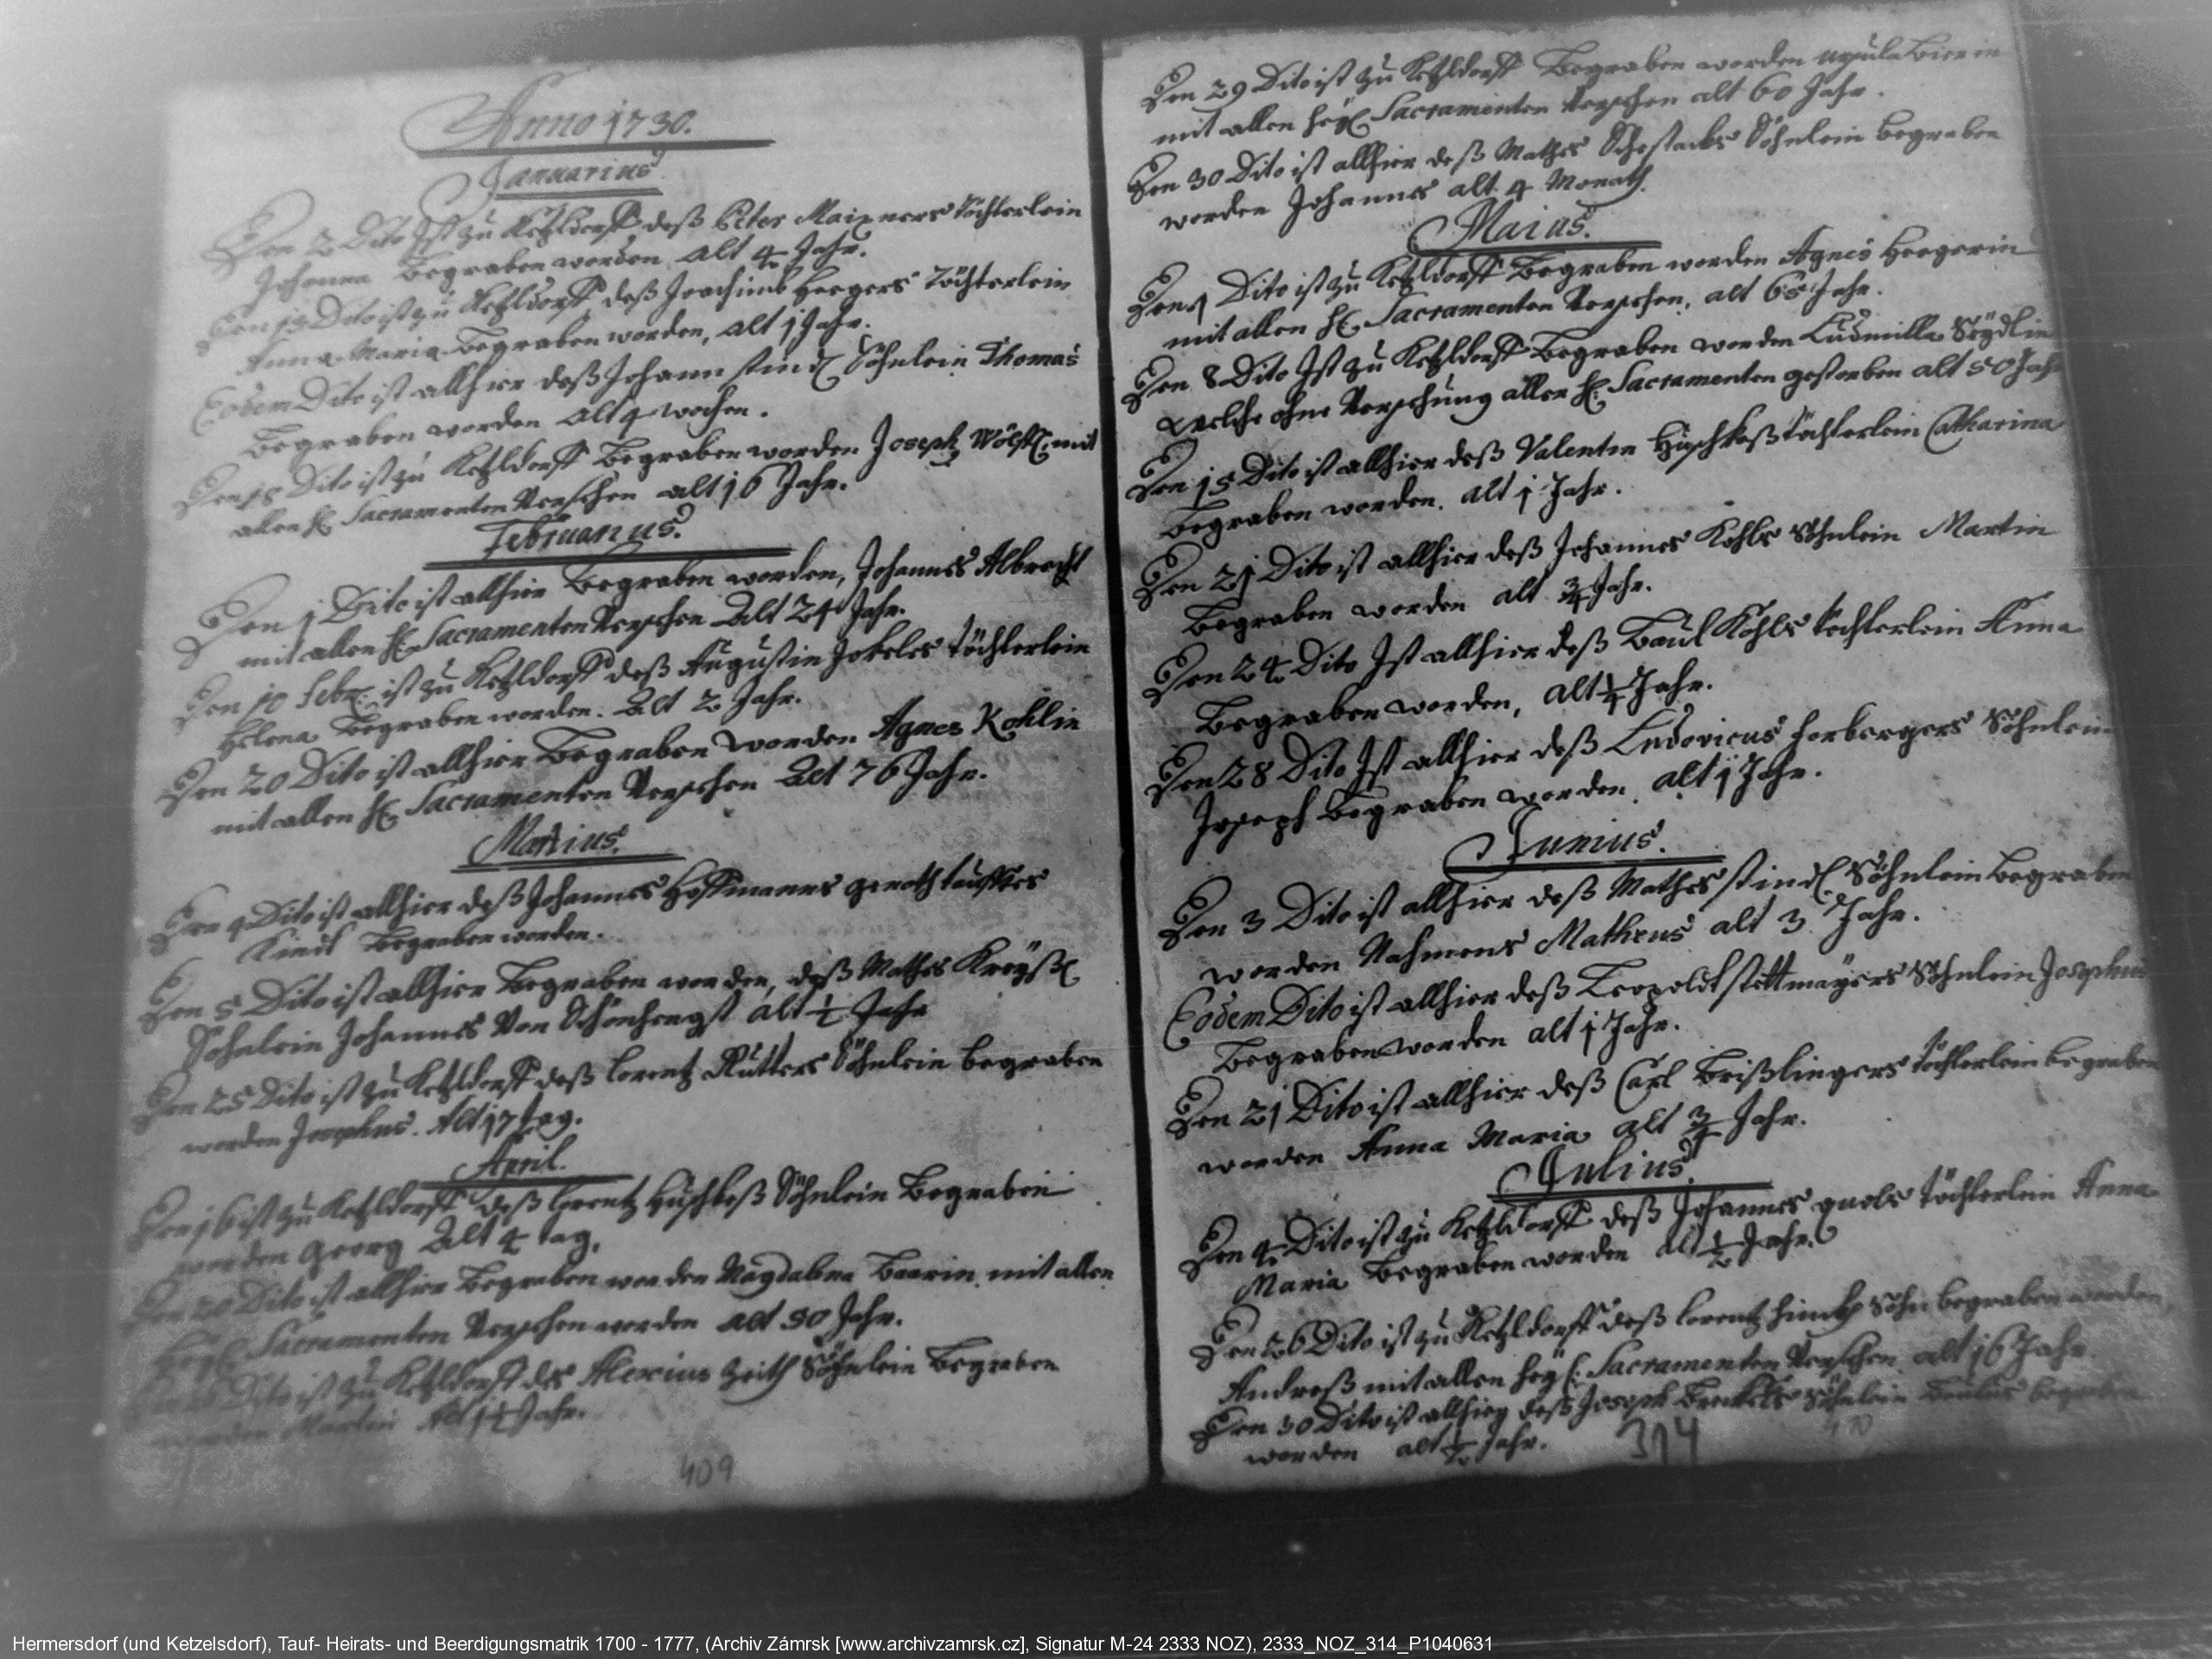 Anno 1730.
Januarius
Den 2 Dito Ist zu Ketzldorff deß Peter Maixners Töchterlein
Johanna Begraben worden Alt 4 Jahr.
Den 13 Dito ist zu Ketzldorff deß Joachimb Heegers Töchterlein
Anna Maria Begraben worden, alt 1 Jahr.
Eodem Dito ist allhier deß Johann Söhnlein Thomas
Begraben worden alt 4 wochen.
Den 18 Dito ist zu Ketzldorff Begraben worden Joseph mit
allen Sacramenten Versehen alt 16 Jahr.
Februarius.
Den 1 Dito ist allhier Begraben worden, Johannes Albrecht
mit allen Sacramenten Versehen Alt 24 Jahr.
Den 10 Febr: ist zu Ketzldorff deß Augustin Jokeles Töchterlein
Helena Begraben worden. Alt 2 Jahr.
Den 20 Dito ist allhier Begraben Worden Agnes Kohlin
mit allen Sacramenten Versehen Alt 76 Jahr.
Martius.
Den 4 Dito ist allhier deß Johannes Hoffmanns genothtaufftes
Kindl Begraben worden.
Den 5 Dito ist allhier Begraben worden, deß Mathes
Söhnlein Johannes Von Schönhengst alt 1/2 Jahr
Den 25 Dito ist zu Ketzldorff deß Lorentz Rutters Söhnlein begraben
worden Josephus. Alt 17 tag.
April.
Den 16 ist zu Ketzldorff deß Lorentz Huschkeß Söhnlein Begraben
worden Georg Alt 4 tag.
Den 20 Dito ist allhier Begraben worden Magdalena mit allen
Sacramenten Versehen worden alt 90 Jahr.
Dito ist zu Ketzldorff des Alexius Söhnlein Begraben
worden Martin Alt 1 1/2 Jahr.
409
Den 29 Dito ist zu Ketzldorff Begraben worden
mit allen Sacramenten Versehen alt 60 Jahr.
Den 30 Dito ist allhier deß Mathes Schestacks Söhnlein begraben
worden Johannes alt 4 Monath.
Maius.
Den 1 Dito ist zu Ketzldorff Begraben worden Agnes Heegerin
mit allen Sacramenten Versehen, alt 65 Jahr.
Den 8 Dito Ist zu Ketzldorff Begraben worden Ludmilla Seydlin
welche ohne Versehung aller Sacramenten gestorben alt 50 Jahr
Den 15 Dito ist allhier deß Valentin Huschkeß töchterlein Catharina
Begraben worden. alt 1 Jahr.
Den 21 Dito ist allhier deß Johannes Kohls Söhnlein Martin
Begraben worden alt 3/4 Jahr.
Den 24 Dito Ist allhier deß Paul Kohls töchterlein Anna
Begraben worden, alt 1/4 Jahr.
Den 28 Dito Ist allhier deß Ludovicus Herbergers Söhnlein
Joseph Begraben worden, alt 1 Jahr.
Junius.
Den 3 Dito ist allhier deß Mathes Söhnlein Begraben
worden Nahmens Matheus alt 3 Jahr.
Eodem Dito ist allhier deß Leopoldt Stettmayers Söhnlein Josephus
Begraben worden alt 1 Jahr.
Den 21 Dito ist allhier deß Carl Beißlingers töchterlein begraben
worden Anna Maria alt 3/4 Jahr.
Julius.
Den 4 Dito ist zu Ketzldorff deß Johannes töchterlein Anna
Maria Begraben worden alt 1/2 Jahr.
Den 26 Dito ist zu Ketzldorff deß Lorentz Sohn begraben worden
Andreß mit allen Sacramenten Versehen alt 16 Jahr
Den 30 Dito ist allhier deß Joseph Söhnlein begraben
worden alt 1/2 Jahr.
314
410
Hermersdorf (und Ketzelsdorf), Tauf- Heirats- und Beerdigungsmatrik 1700 - 1777, (Archiv Zámrsk [www.archivzamrsk.cz], Signatur M-24 2333 NOZ), 2333_NOZ_314_P1040631